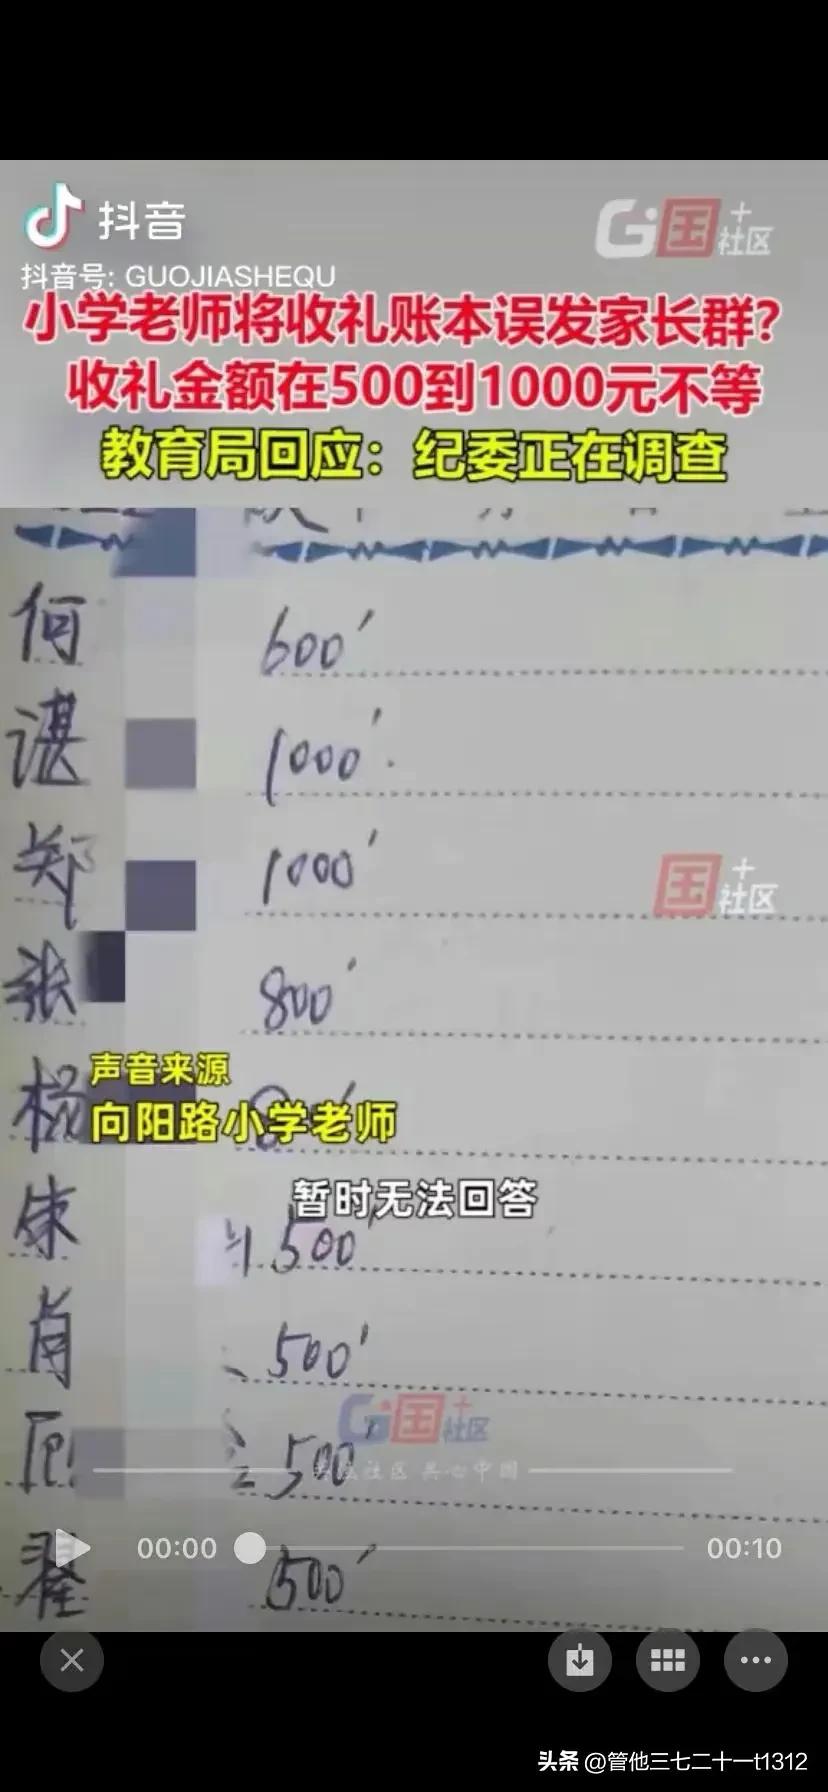 抖音
G国+社区
抖音号: GUOJIASHEQU
小学老师将收礼账本误发家长群?
收礼金额在500到1000元不等
教育局回应：纪委正在调查
何 600
谌 1000
郑 1000
国+社区
张 800
声音来源
杨
向阳路小学老师
暂时无法回答
朱 500
肖 500
G国+社区
社区 共心中国
500
00:00
00:10
翟 500
头条 @管他三七二十一t1312